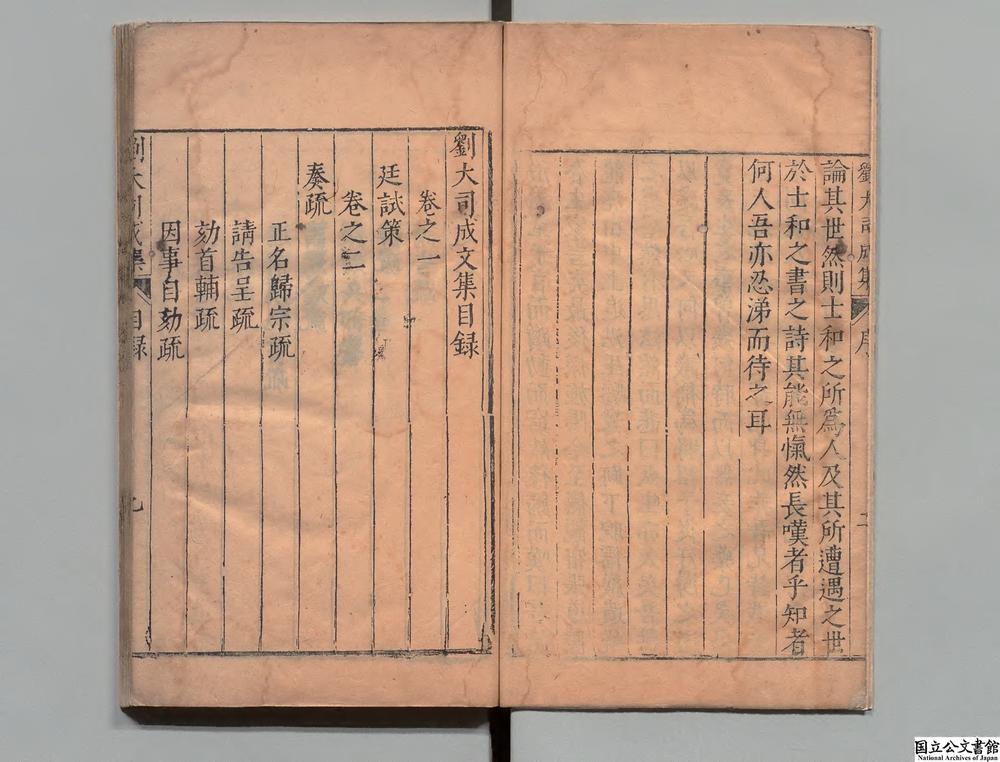 劉大司成集 序 二
論其世然則士和之所爲人及其所遭遇之世
於士和之書之詩其能無愾然長嘆者乎知者
何人吾亦忍涕而待之耳
劉大司成文集目録
卷之一
廷試策
卷之二
奏疏
正名歸宗疏
請告呈疏
劾首輔疏
因事自劾疏
劉大司成集 目録
国立公文書館
National Archives of Japan